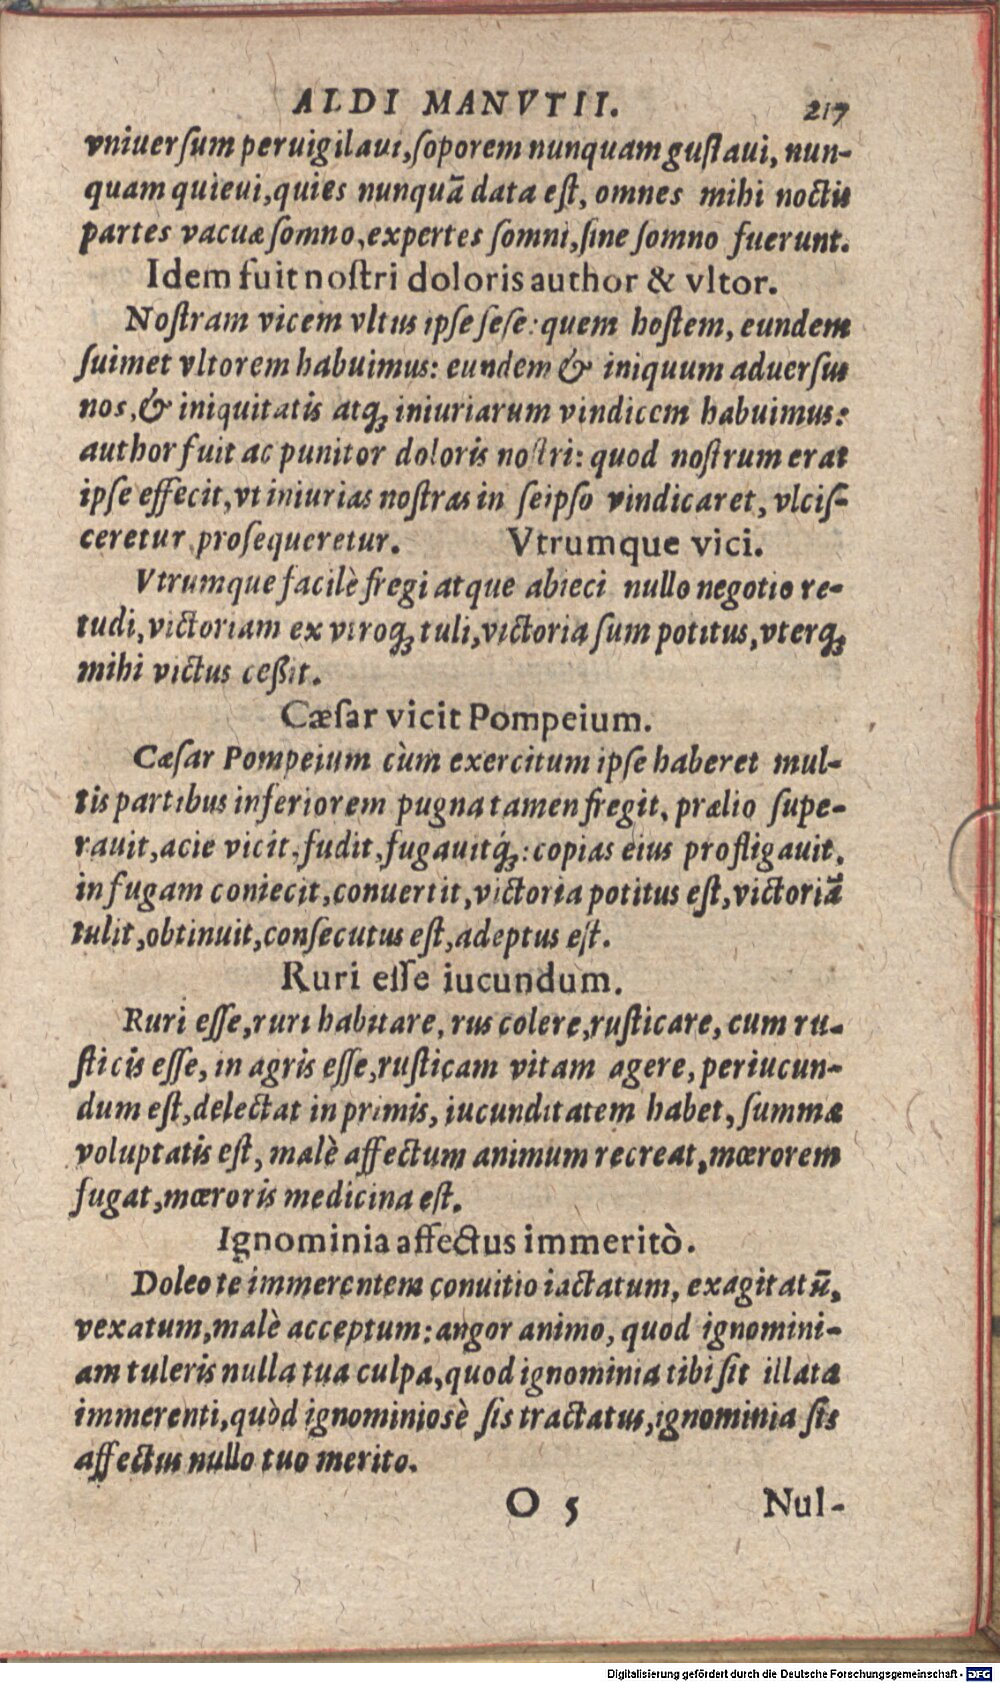 ALDI MANVTII. 217
vniuerſum peruigilaui, ſoporem nunquam guſtaui, nun-
quam quieui, quies nunquã data eſt, omnes mihi noctis
partes vacuæ ſomno, expertes ſomni, ſine ſomno fuerunt.
Idem fuit noſtri doloris author & vltor.
Noſtram vicem vltus ipſe ſeſe: quem hoſtem, eundem
ſuimet vltorem habuimus: eundem & iniquum aduerſus
nos, & iniquitatis atq; iniuriarum vindicem habuimus:
author fuit ac punitor doloris noſtri: quod noſtrum erat
ipſe effecit, vt iniurias noſtras in ſeipſo vindicaret, vlciſ-
ceretur, proſequeretur. Vtrumque vici.
Vtrumque facilè fregi atque abieci nullo negotio re-
tudi, victoriam ex vtroq; tuli, victoria ſum potitus, vterq;
mihi victus ceßit.
Cæſar vicit Pompeium.
Cæſar Pompeium cùm exercitum ipſe haberet mul-
tis partibus inferiorem pugna tamen fregit, prælio ſupe-
rauit, acie vicit, fudit, fugauitq́;: copias eius profligauit,
in fugam coniecit, conuertit, victoria potitus eſt, victoriã
tulit, obtinuit, conſecutus eſt, adeptus eſt.
Ruri eſſe iucundum.
Ruri eſſe, ruri habitare, rus colere, ruſticare, cum ru-
ſticis eſſe, in agris eſſe, ruſticam vitam agere, periucun-
dum eſt, delectat in primis, iucunditatem habet, ſummæ
voluptatis eſt, malè affectum animum recreat, mœrorem
fugat, mœroris medicina eſt.
Ignominia affectus immeritò.
Doleo te immerentem conuitio iactatum, exagitatũ,
vexatum, malè acceptum: angor animo, quod ignomini-
am tuleris nulla tua culpa, quod ignominia tibi ſit illata
immerenti, quòd ignominiosè ſis tractatus, ignominia ſis
affectus nullo tuo merito.
O 5 Nul-
Digitalisierung gefördert durch die Deutsche Forschungsgemeinschaft - DFG